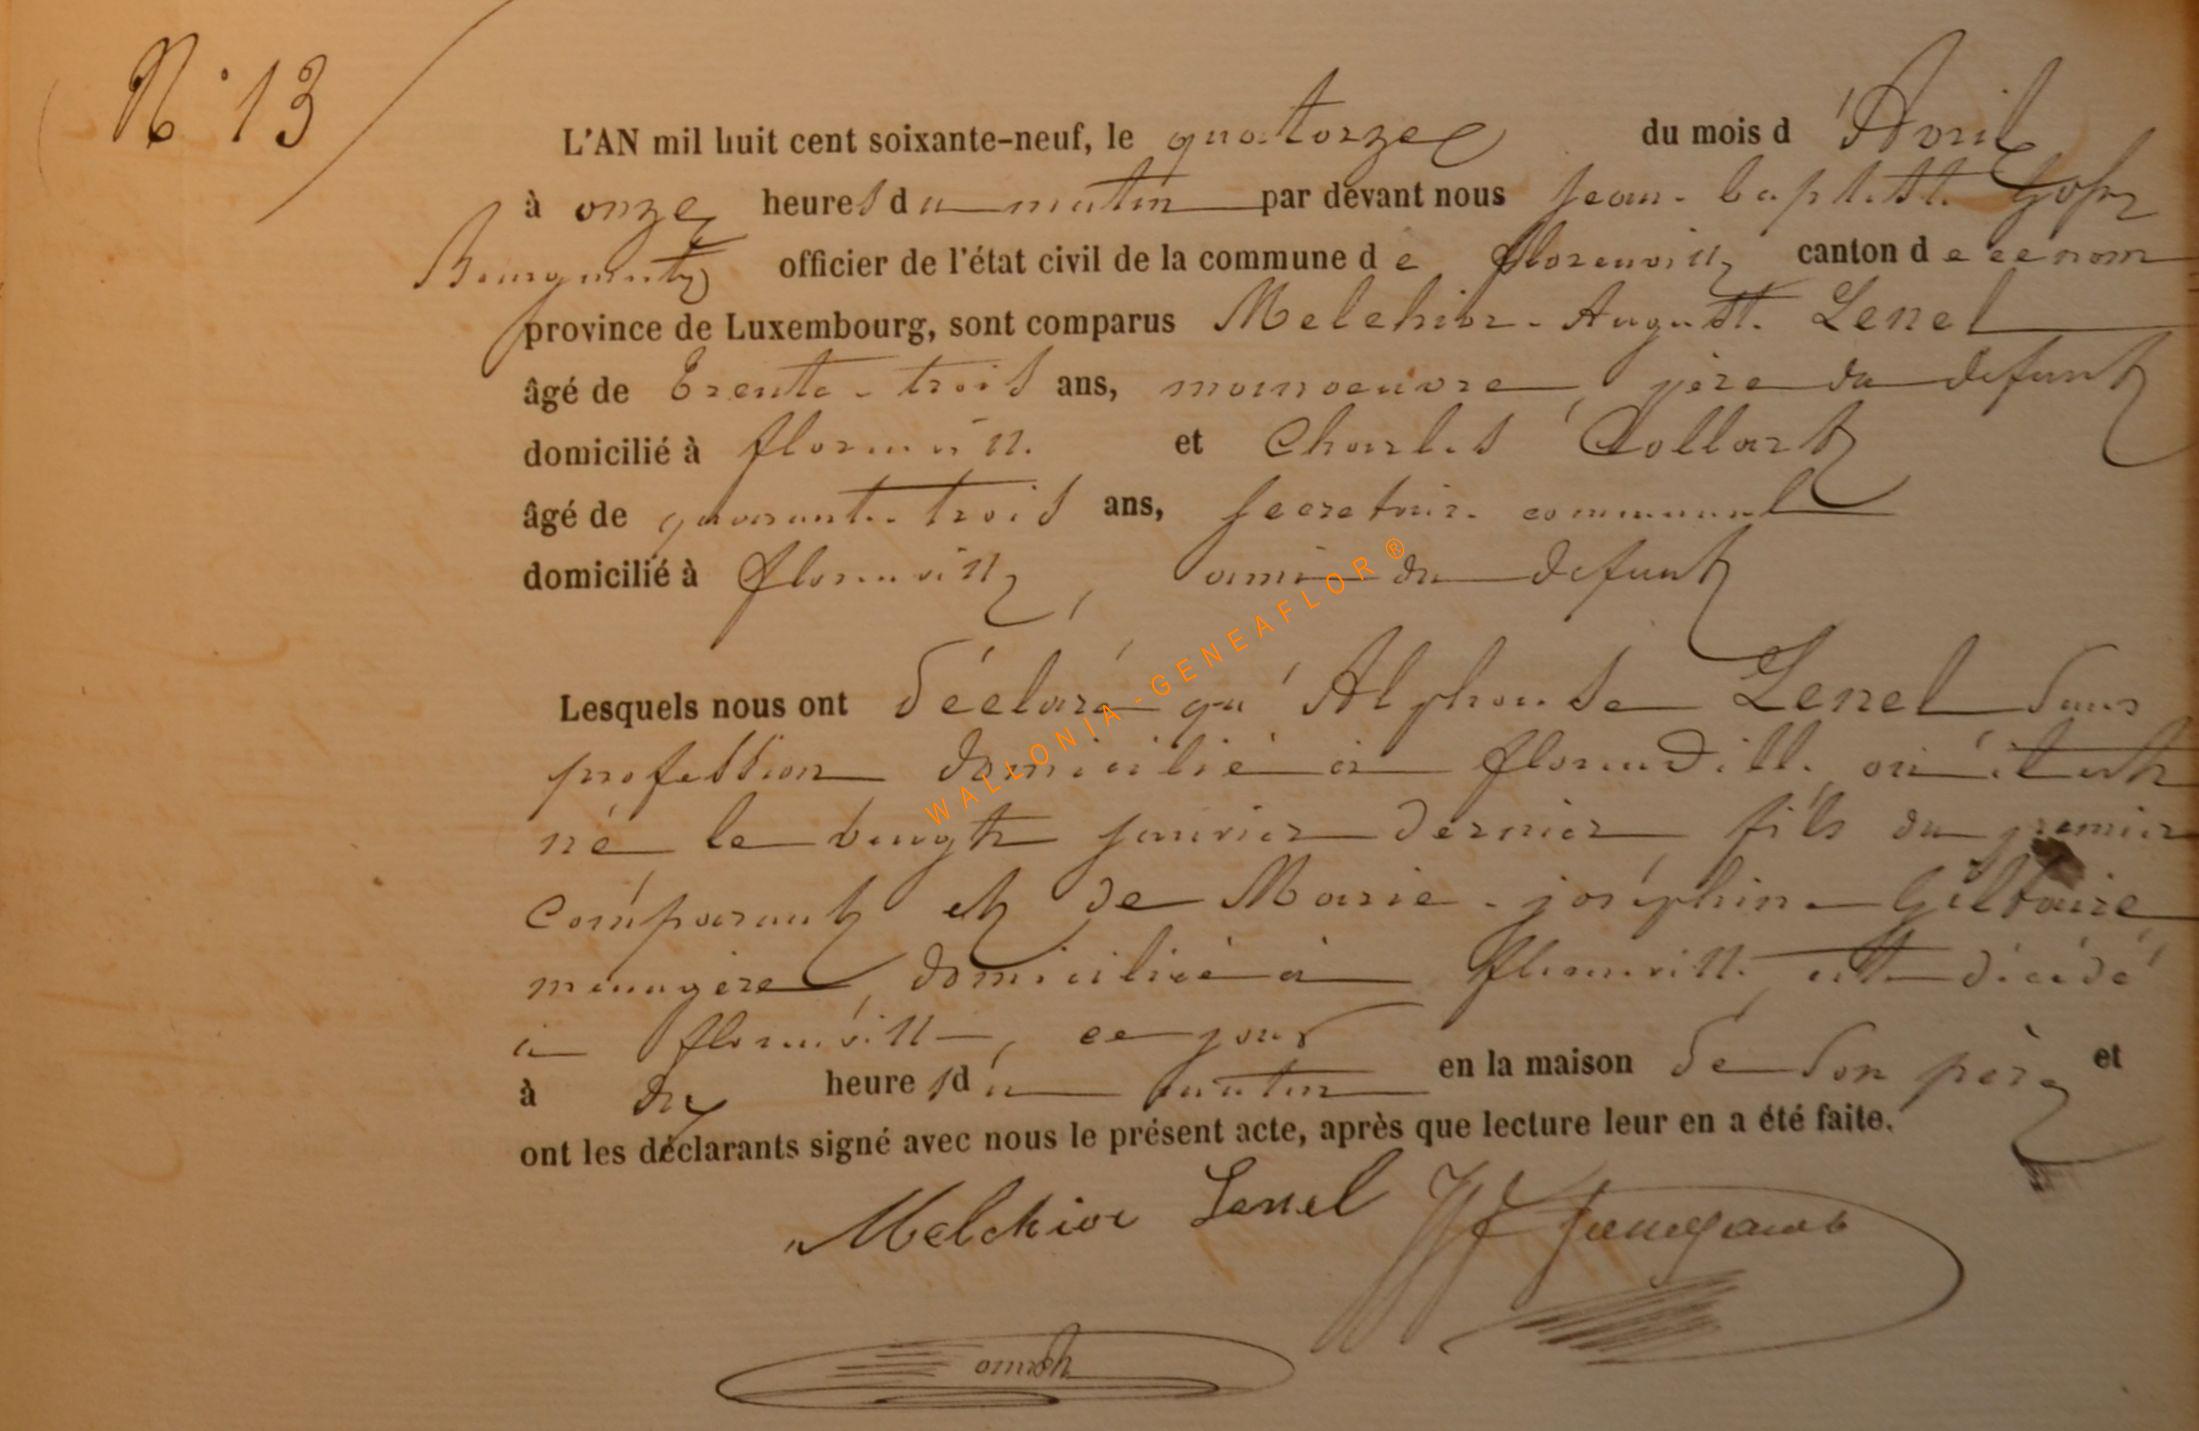 N° 13
L'AN mil huit cent soixante-neuf, le quatorze du mois d'Avril
à onze heures du matin par devant nous Jean-baptiste
officier de l'état civil de la commune de florenville canton de ce nom
province de Luxembourg, sont comparus Melchior-Auguste Lenel
âgé de trente-trois ans, manoeuvre, père du défunt
domicilié à florenville et Charles Collart
âgé de quarante-trois ans, secretaire communal
domicilié à florenville, ami du défunt
Lesquels nous ont déclaré qu'Alphonse Lenel sans
profession domicilié à florenville, où il est
né le vingt janvier dernier fils du premier
comparant et de Marie-joséphine Giltaire
menagère, domiciliée à florenville est décédé
à florenville, ce jour
à dix heures du matin en la maison de son père et
ont les déclarants signé avec nous le présent acte, après que lecture leur en a été faite.
Melchior Lenel
WALLONIA-GENEAFLOR ®